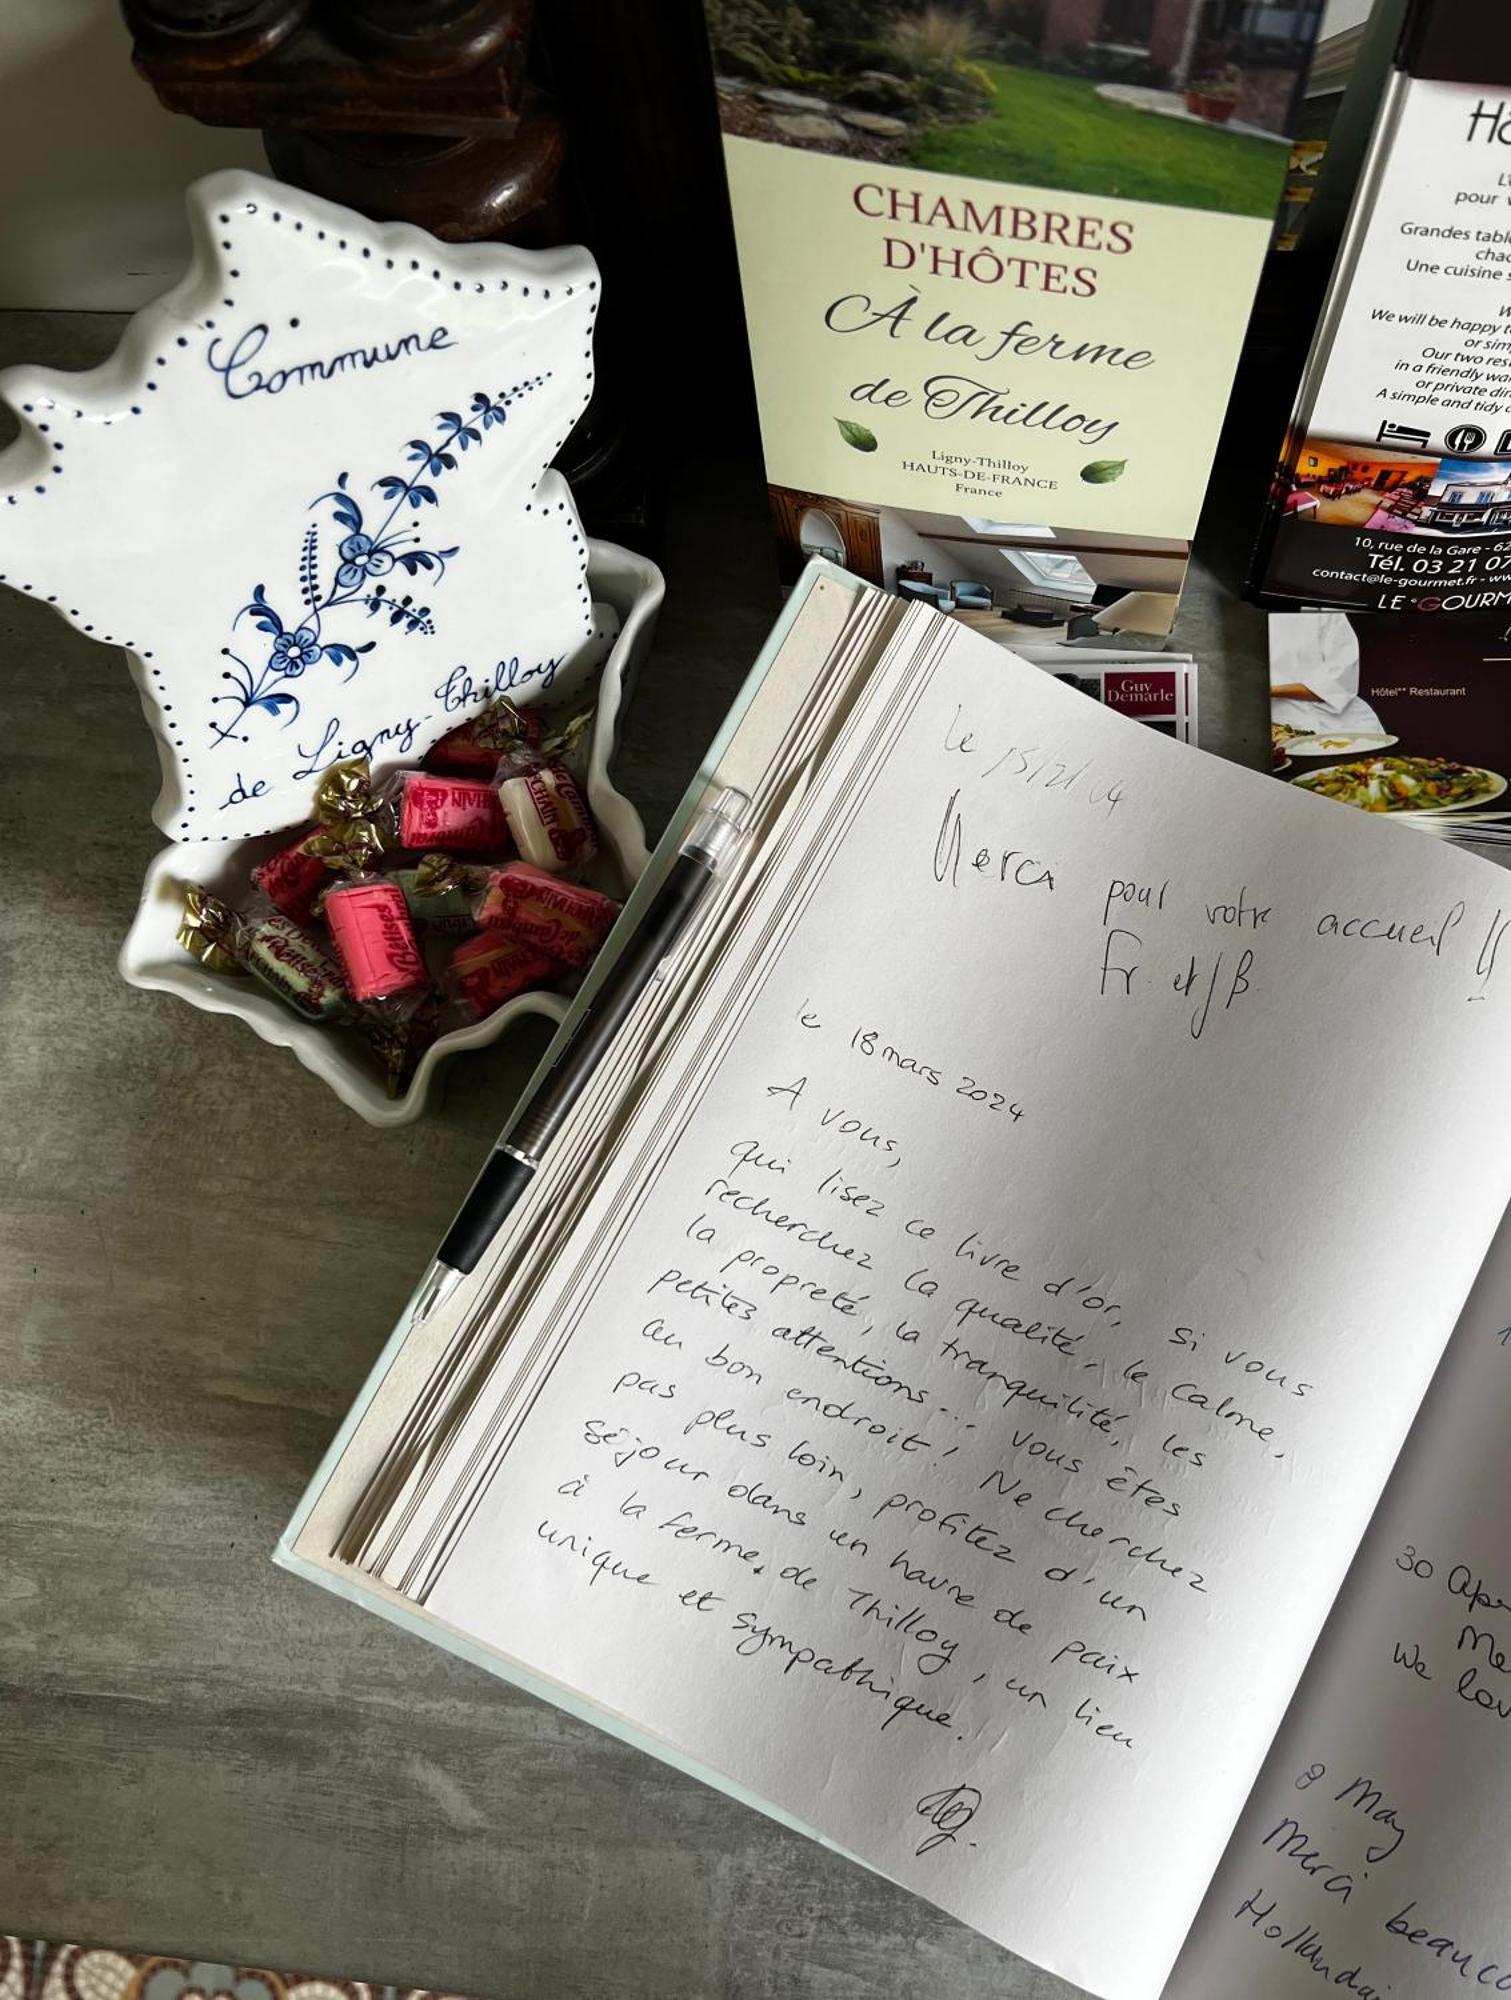 Commune
de Ligny-Thilloy
CHAMBRES
D'HÔTES
À la ferme
de Thilloy
Ligny-Thilloy
HAUTS-DE-FRANCE
France
pour
Grandes tabl
Une cuisine
We will be happy t
or sim
Our two rest
in a friendly wa
or private din
A simple and tidy
10, rue de la Gare - 62
Tél. 03 21 07
contact@le-gourmet.fr - ww
LE GOURM
Hôtel** Restaurant
Guy
Demarle
Bêtises
de Cambrai
le
Merci pour votre accueil !!
Fr. et JB
le 18 mars 2024
A vous,
qui lisez ce livre d'or, si vous
recherchez la qualité, le calme,
la propreté, la tranquilité, les
petites attentions... vous êtes
au bon endroit! Ne cherchez
pas plus loin, profitez d'un
séjour dans un havre de paix
à la ferme de Thilloy, un lieu
unique et sympathique!
30 Apr
Me
We lov
8 May
Merci beauco
Hollandai